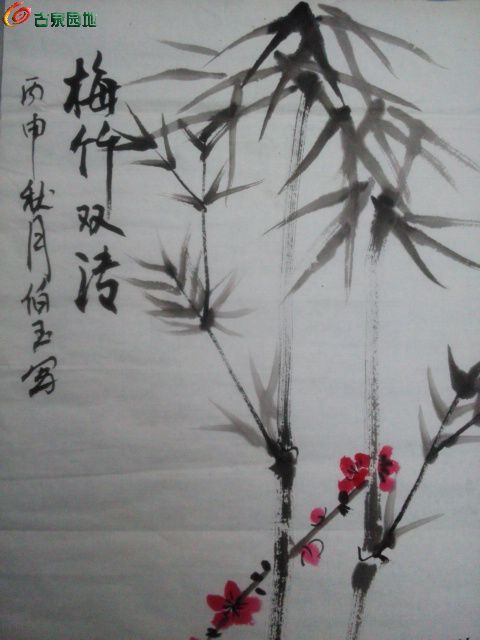 古泉园地
梅竹双清
丙申秋月伯玉写